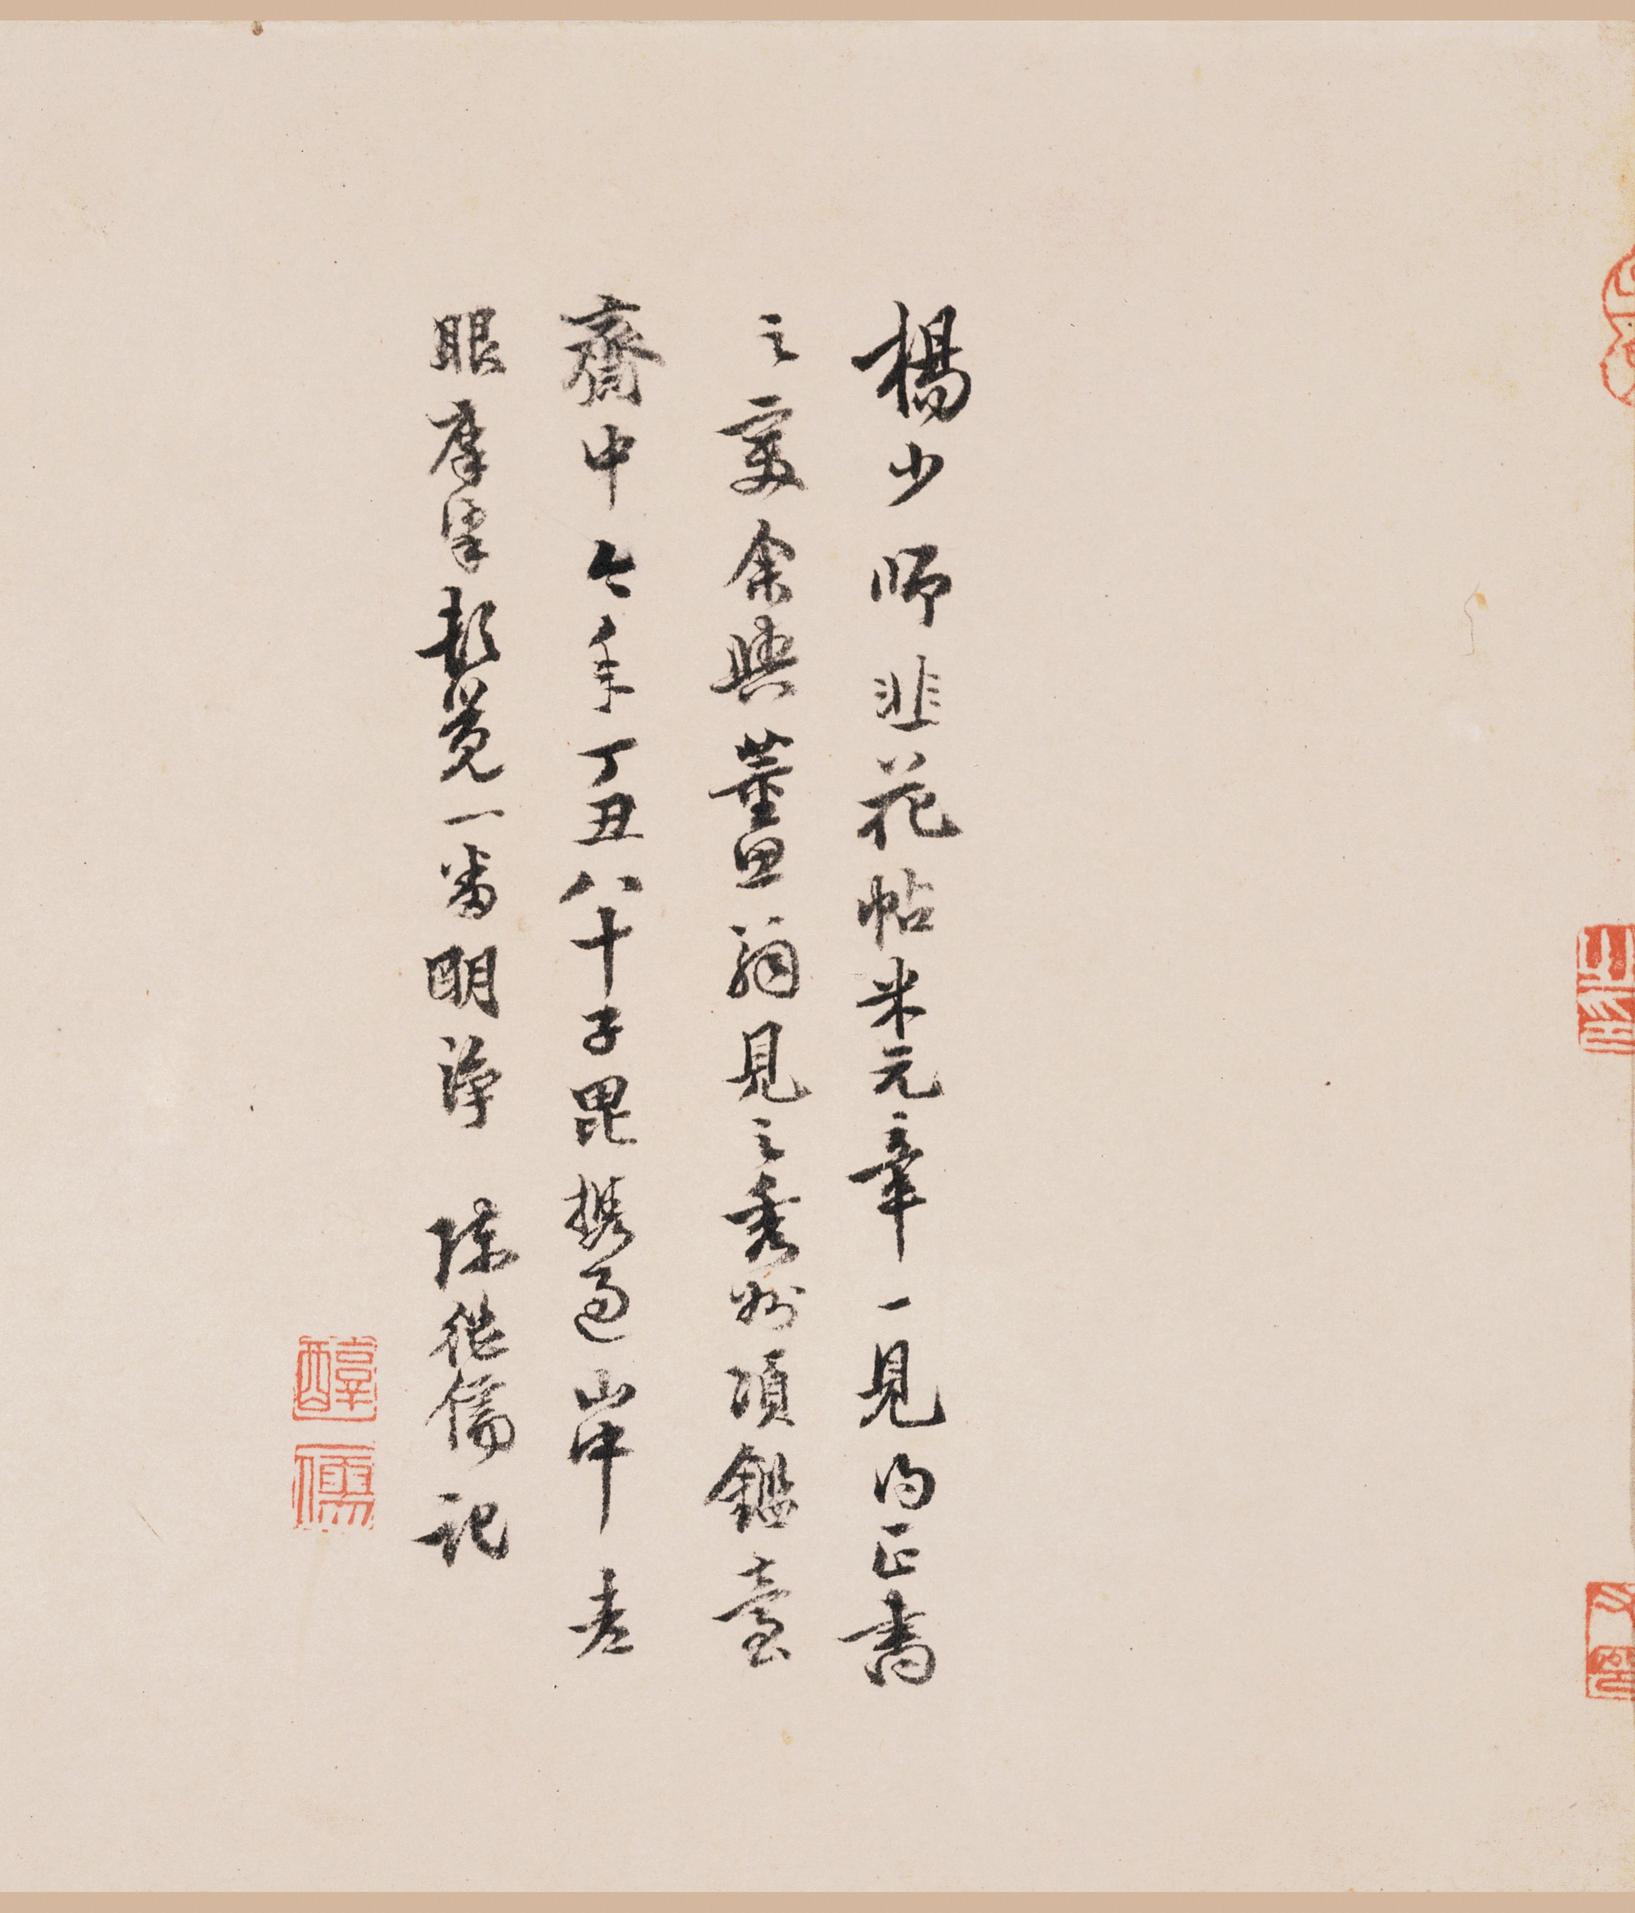 楊少師韭花帖米元章一見為正書
之變余與董思翁見之秀州項鑑臺
齋中今年丁丑八十子毘携過山中老
眼摩挲頓覺一番明淨 陳継儒記
醇
儒